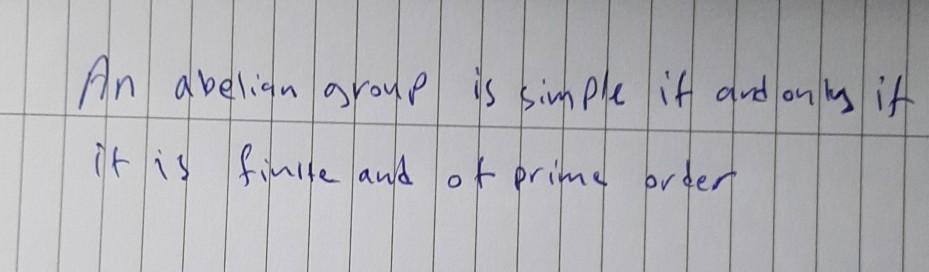 An abelian group is simple if and only if
it is finite and of prime order